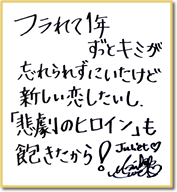 フラれて1年
ずっとキミが
忘れられずにいたけど
新しい恋したいし、
「悲劇のヒロイン」も
飽きたから!
Juliet♡